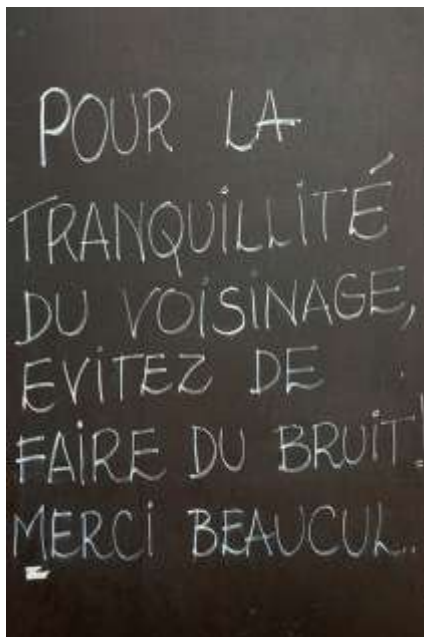 POUR LA
TRANQUILLITÉ
DU VOISINAGE,
EVITEZ DE
FAIRE DU BRUIT!
MERCI BEAUCUL..